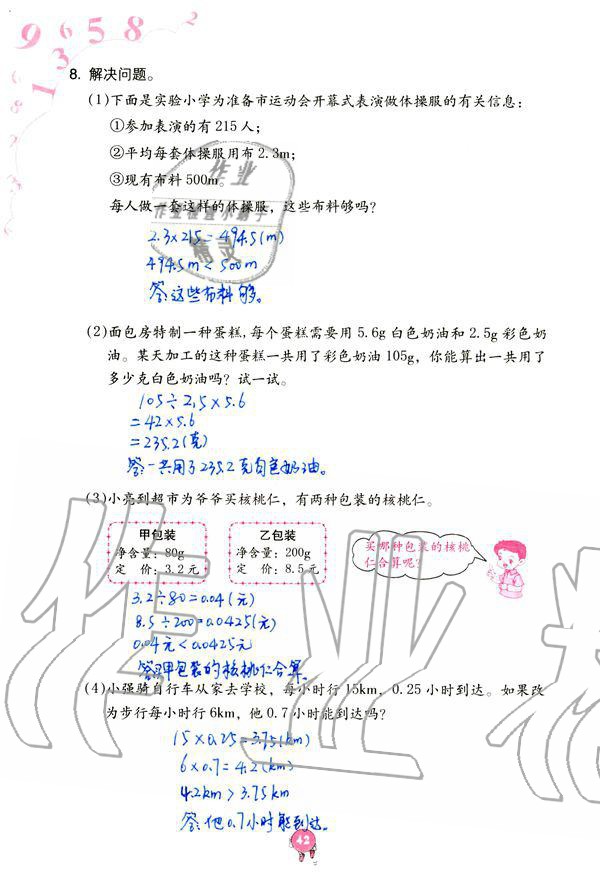 9 6 5 8 2
3
1
8. 解决问题。
(1)下面是实验小学为准备市运动会开幕式表演做体操服的有关信息：
①参加表演的有 215 人；
②平均每套体操服用布 2.3m；
③现有布料 500m。
每人做一套这样的体操服，这些布料够吗？
2.3×215=494.5(m)
494.5m<500m
答:这些布料够。
(2)面包房特制一种蛋糕，每个蛋糕需要用 5.6g 白色奶油和 2.5g 彩色奶
油。某天加工的这种蛋糕一共用了彩色奶油 105g，你能算出一共用了
多少克白色奶油吗？试一试。
105÷2.5×5.6
=42×5.6
=235.2(克)
答:一共用了235.2克白色奶油。
(3)小亮到超市为爷爷买核桃仁，有两种包装的核桃仁。
甲包装
净含量：80g
定 价：3.2 元
乙包装
净含量：200g
定 价：8.5 元
买哪种包装的核桃
仁合算呢？
3.2÷80=0.04(元)
8.5÷200=0.0425(元)
0.04元<0.0425元
答:甲包装的核桃仁合算。
(4)小强骑自行车从家去学校，每小时行 15km，0.25 小时到达。如果改
为步行每小时行 6km，他 0.7 小时能到达吗？
15×0.25=3.75(km)
6×0.7=4.2(km)
4.2km>3.75km
答:他0.7小时能到达。
42